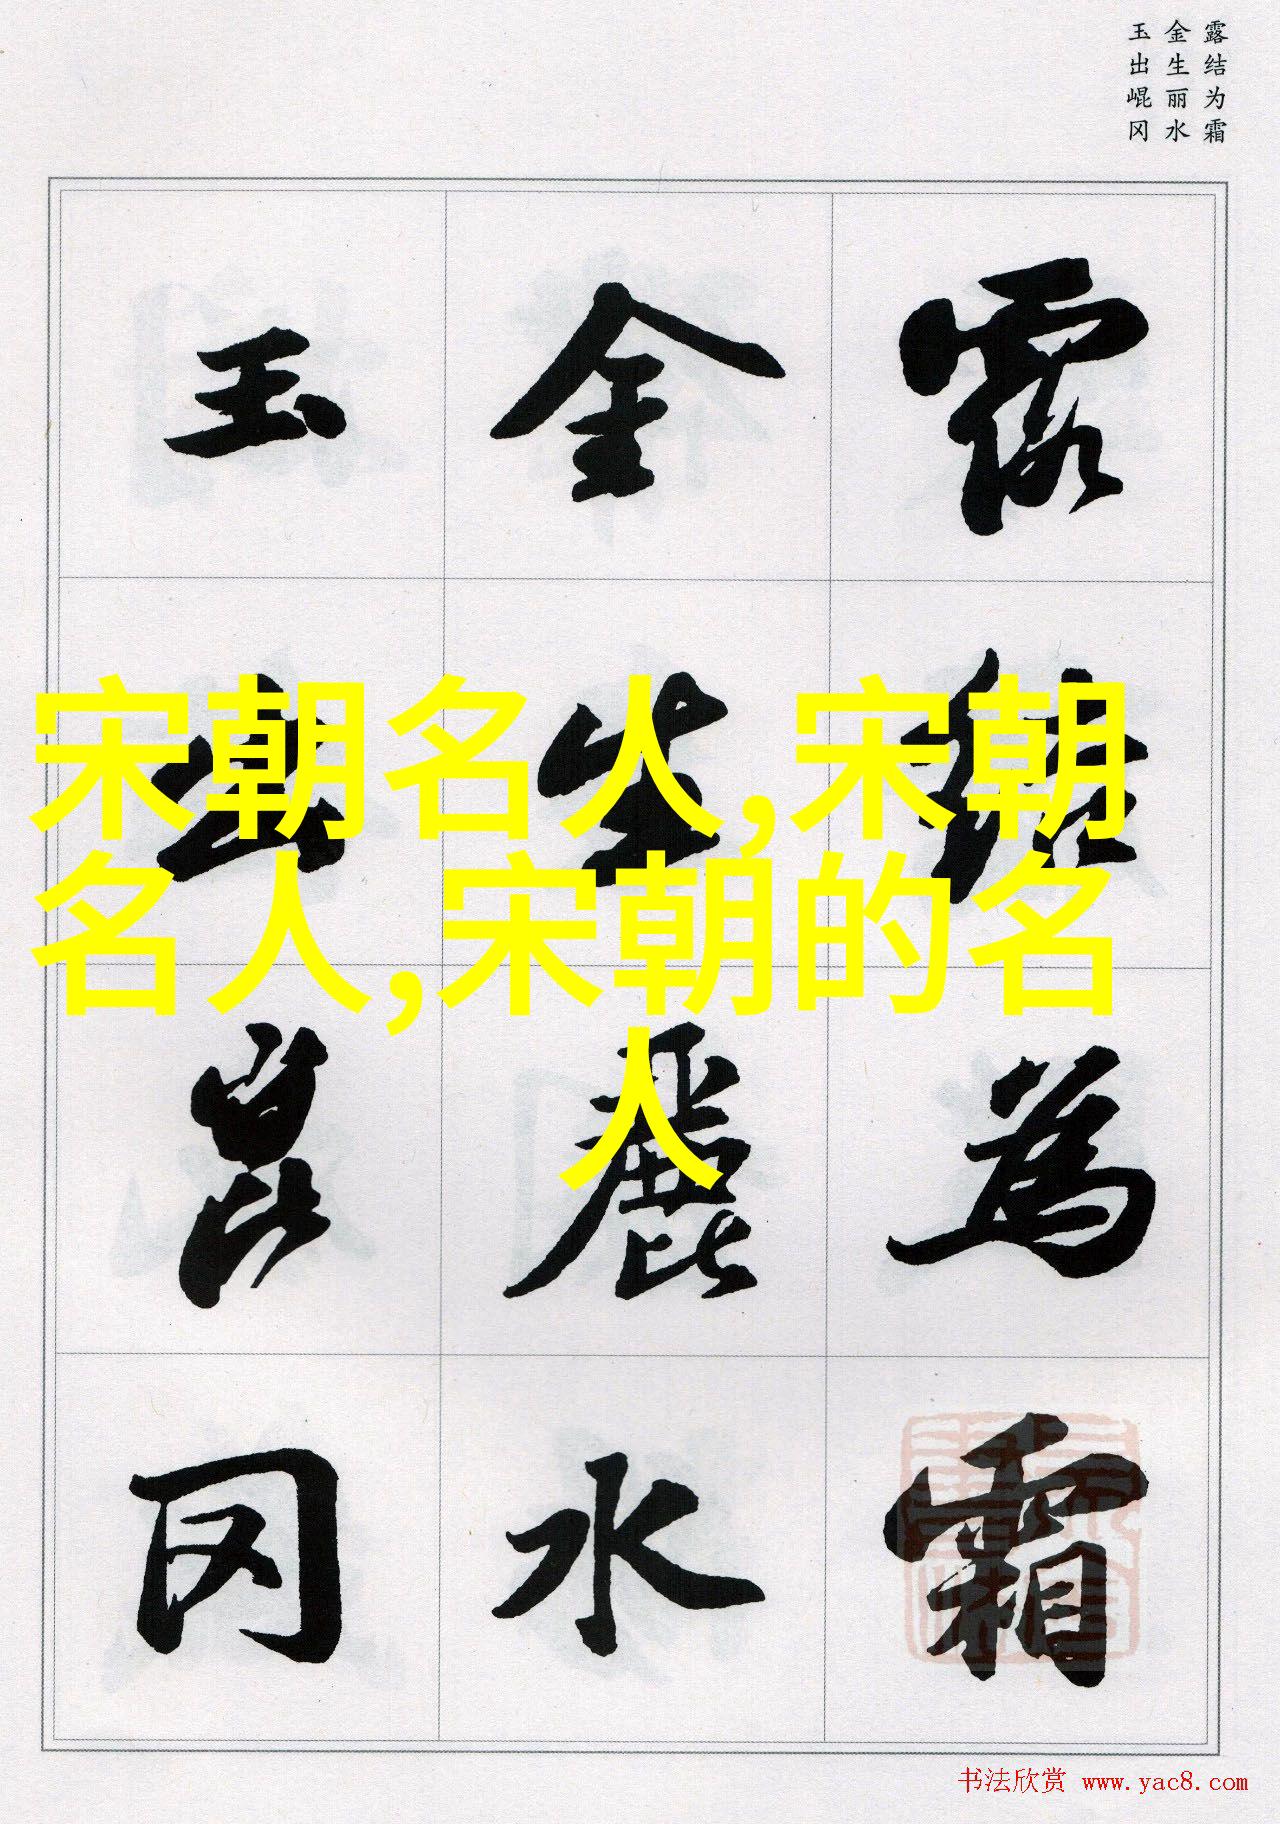 露结为霜
金生丽水
玉出崐冈
露結為霜
金生麗水
玉出崑冈
宋朝名人,宋朝
名人,宋朝的名
人
书法欣赏 www.yac8.com